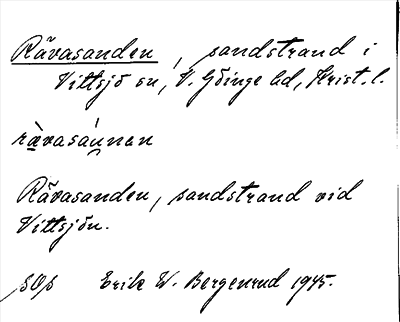 Rävasanden, sandstrand i
Vittsjö sn, V. Göinge hd, Krist. l.
rävasánnen
Rävasanden, sandstrand vid
Vittsjön.
SOS Erik W. Bergenrud 1945.